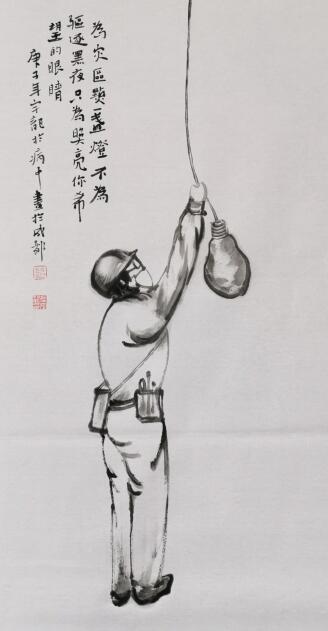 為灾區點一盞燈不為
驅逐黑夜只為照亮你希
望的眼睛
庚子年宇龍於病中畫於成都